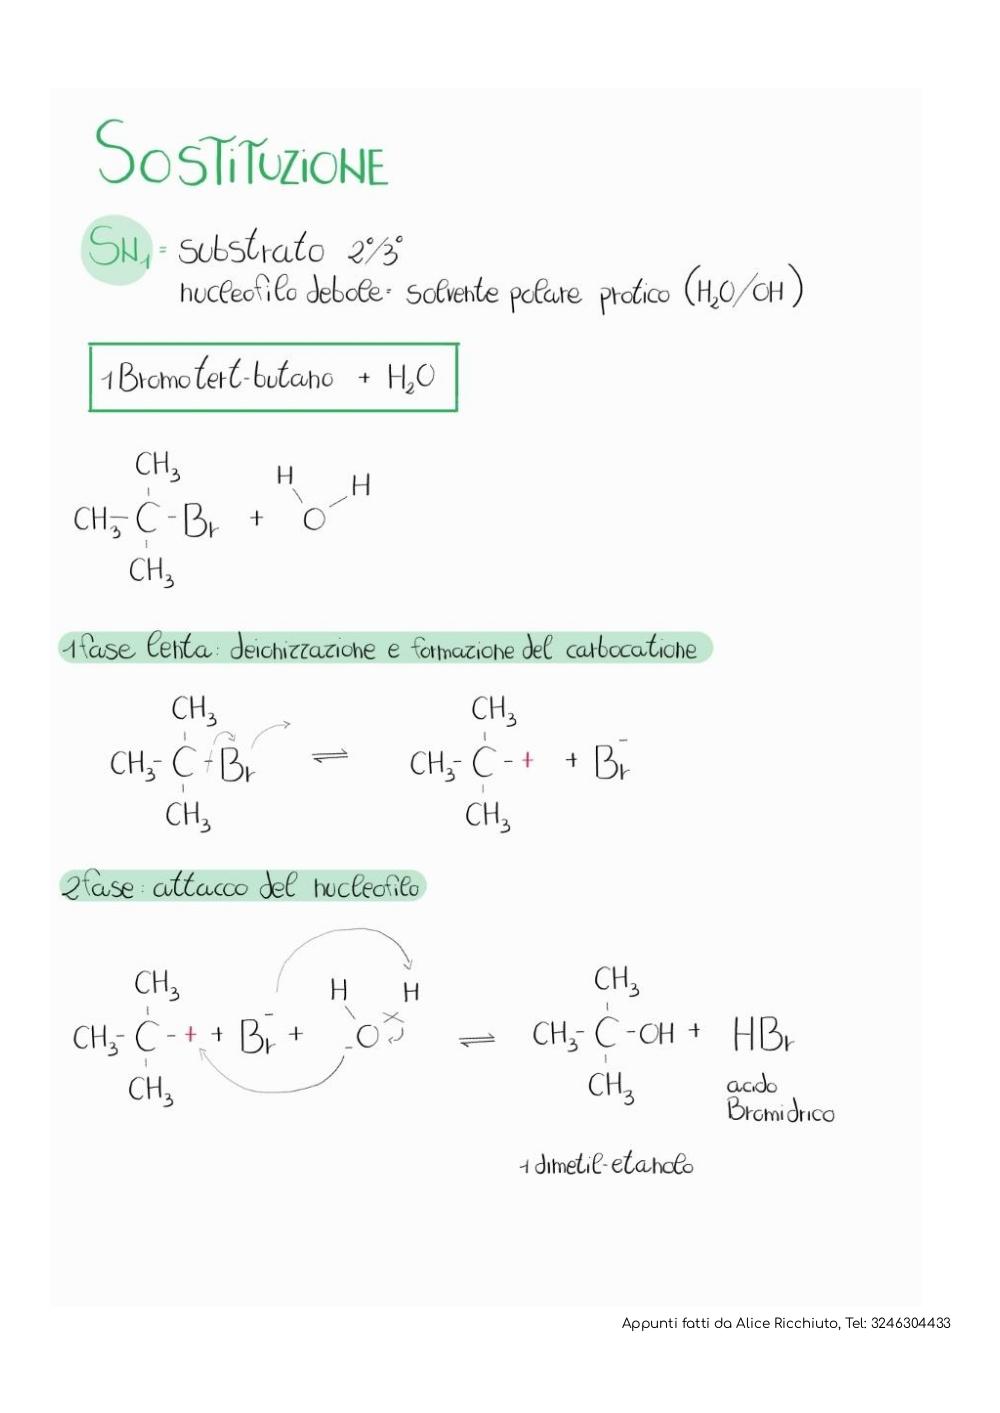 SOSTITUZIONE
SN1 = substrato 2°/3°
nucleofilo debole = solvente polare protico (H2O/OH)
1 Bromo tert-butano + H2O
CH3
H H
CH3-C-Br + O
CH3
1 fase lenta: deionizzazione e formazione del carbocatione
CH3 CH3
CH3-C-Br ⇌ CH3-C-+ + Br-
CH3 CH3
2 fase: attacco del nucleofilo
CH3 H H CH3
CH3-C-+ + Br- + O ⇌ CH3-C-OH + HBr
CH3 CH3 acido
Bromidrico
1 dimetil-etanolo
Appunti fatti da Alice Ricchiuto, Tel: 3246304433